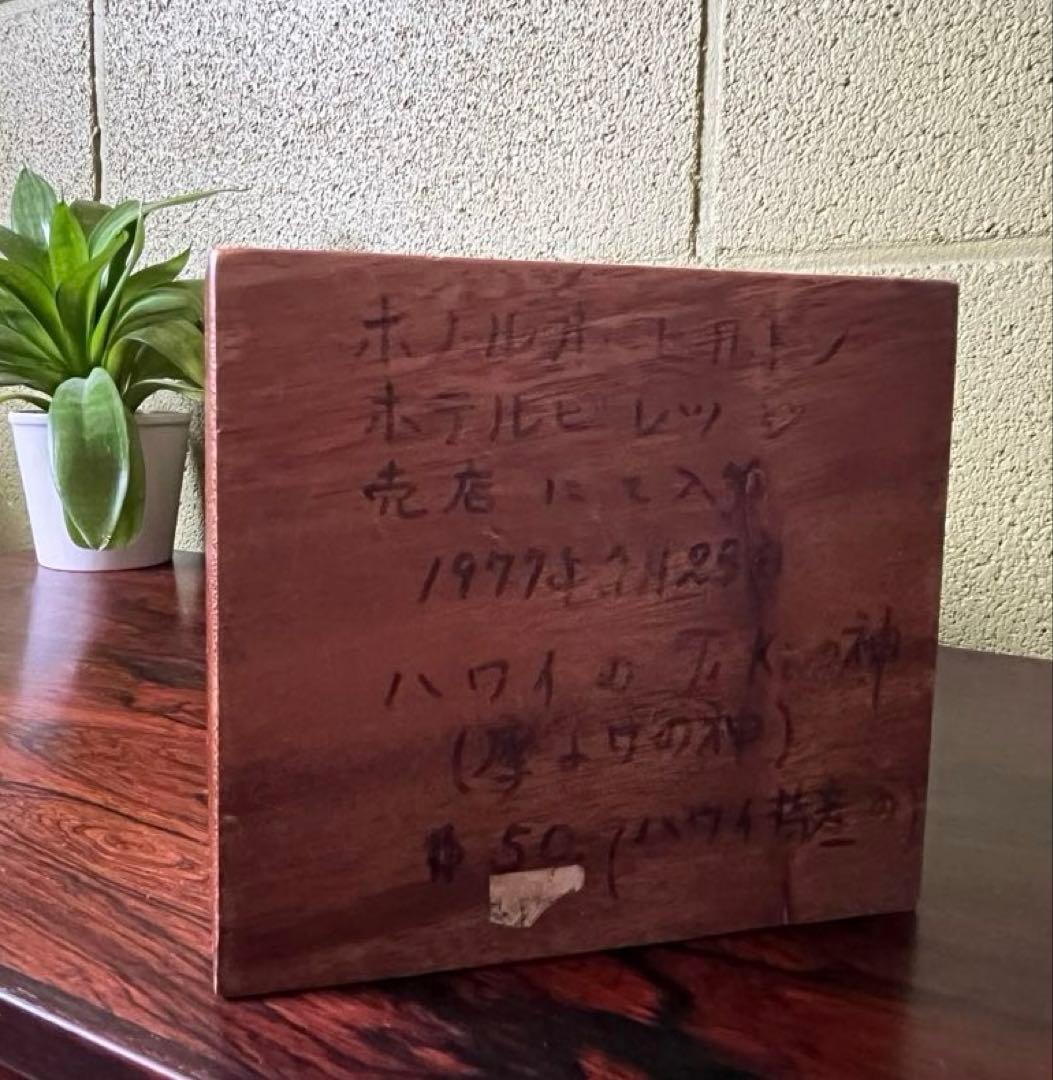 ホノルオ ヒルトン
ホテルビレッジ
売店にて入
1977年7月25日
ハワイの Tikiの神
(よけの神)
$50 (ハワイ の